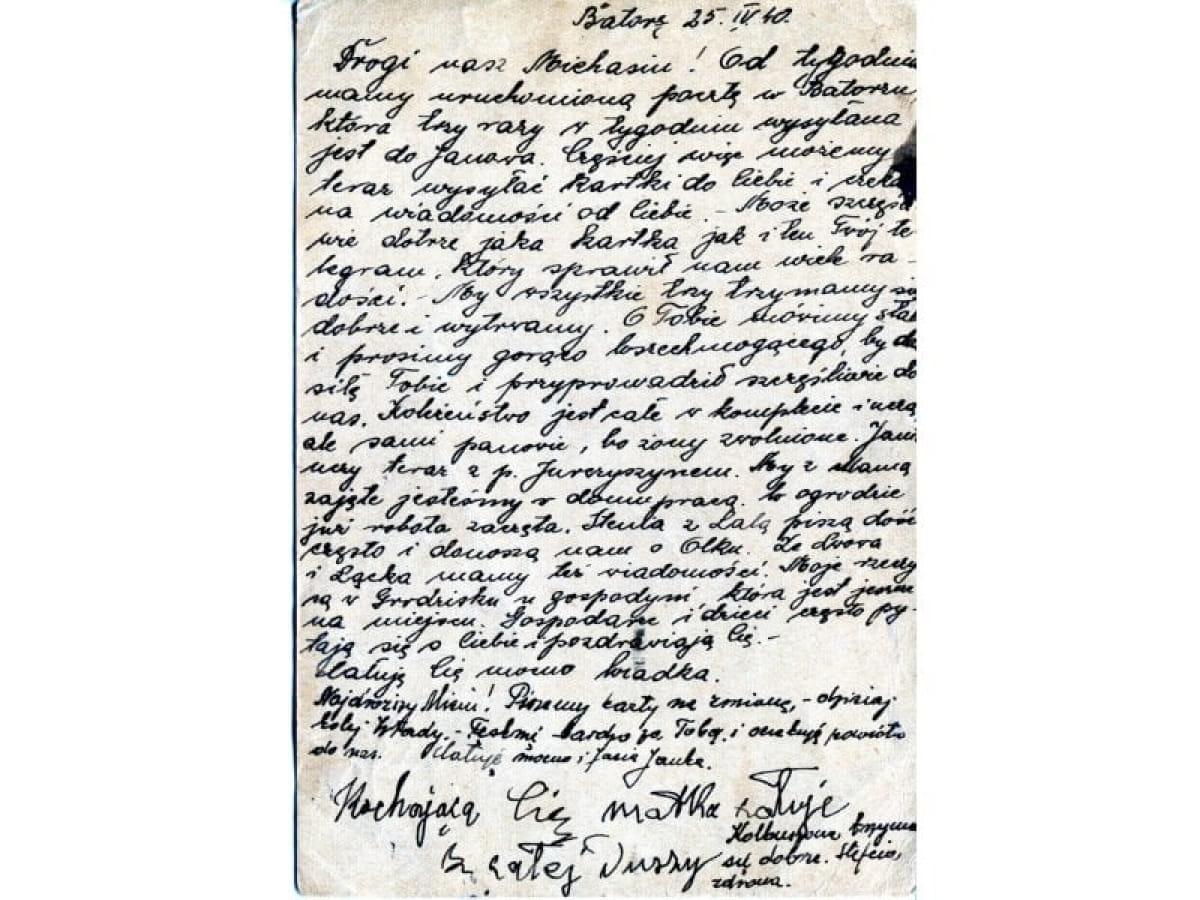 Batorz 25.IV.40.
Drogi nasz Michasiu! Od tygodnia
mamy uruchomioną pocztę w Batorzu,
która trzy razy w tygodniu wysyłana
jest do Janowa. Częściej więc możemy
teraz wysyłać kartki do Ciebie i czeka
na wiadomości od Ciebie. - Może szczęśli
wie dotrze jaka kartka jak i ten Twój te-
legram, który sprawił nam wiele ra-
dości. - My wszystkie trzy trzymamy się
dobrze i wytrwamy. O Tobie mówimy stal
i prosimy gorąco Wszechmogącego, by da
siłę Tobie i przyprowadził szczęśliwie do
nas. Koleżeństwo jest całe w komplecie i uczą
ale sami panowie, bo żony zwolnione. Jani
uczy teraz z p. Jurczyszynem. My z Mamą
zajęte jesteśmy w domu pracą. W ogrodzie
już robota zaczęta. Stenia z Lalą piszą dość
często i donoszą nam o Olku. Ze Lwowa
i Łącka mamy też wiadomości. Moje rzeczy
są w Grodzisku u gospodyni która jest jeszcze
na miejscu. Gospodarze i dzieci często py-
tają się o Ciebie i pozdrawiają Cię. -
Całuję Cię mocno Władka.
Najdroższy Misiu! Piszemy karty na zmianę, - dzisiaj
kolej Władzy. - Tęskni bardzo za Tobą i oczekuję powrotu
do nas. Całuję mocno i Jasia Janka.
Kochająca Cię matka całuje
z całej Duszy
Kolbuszowa trzyma
się dobrze. Stefcia,
zdrowa.